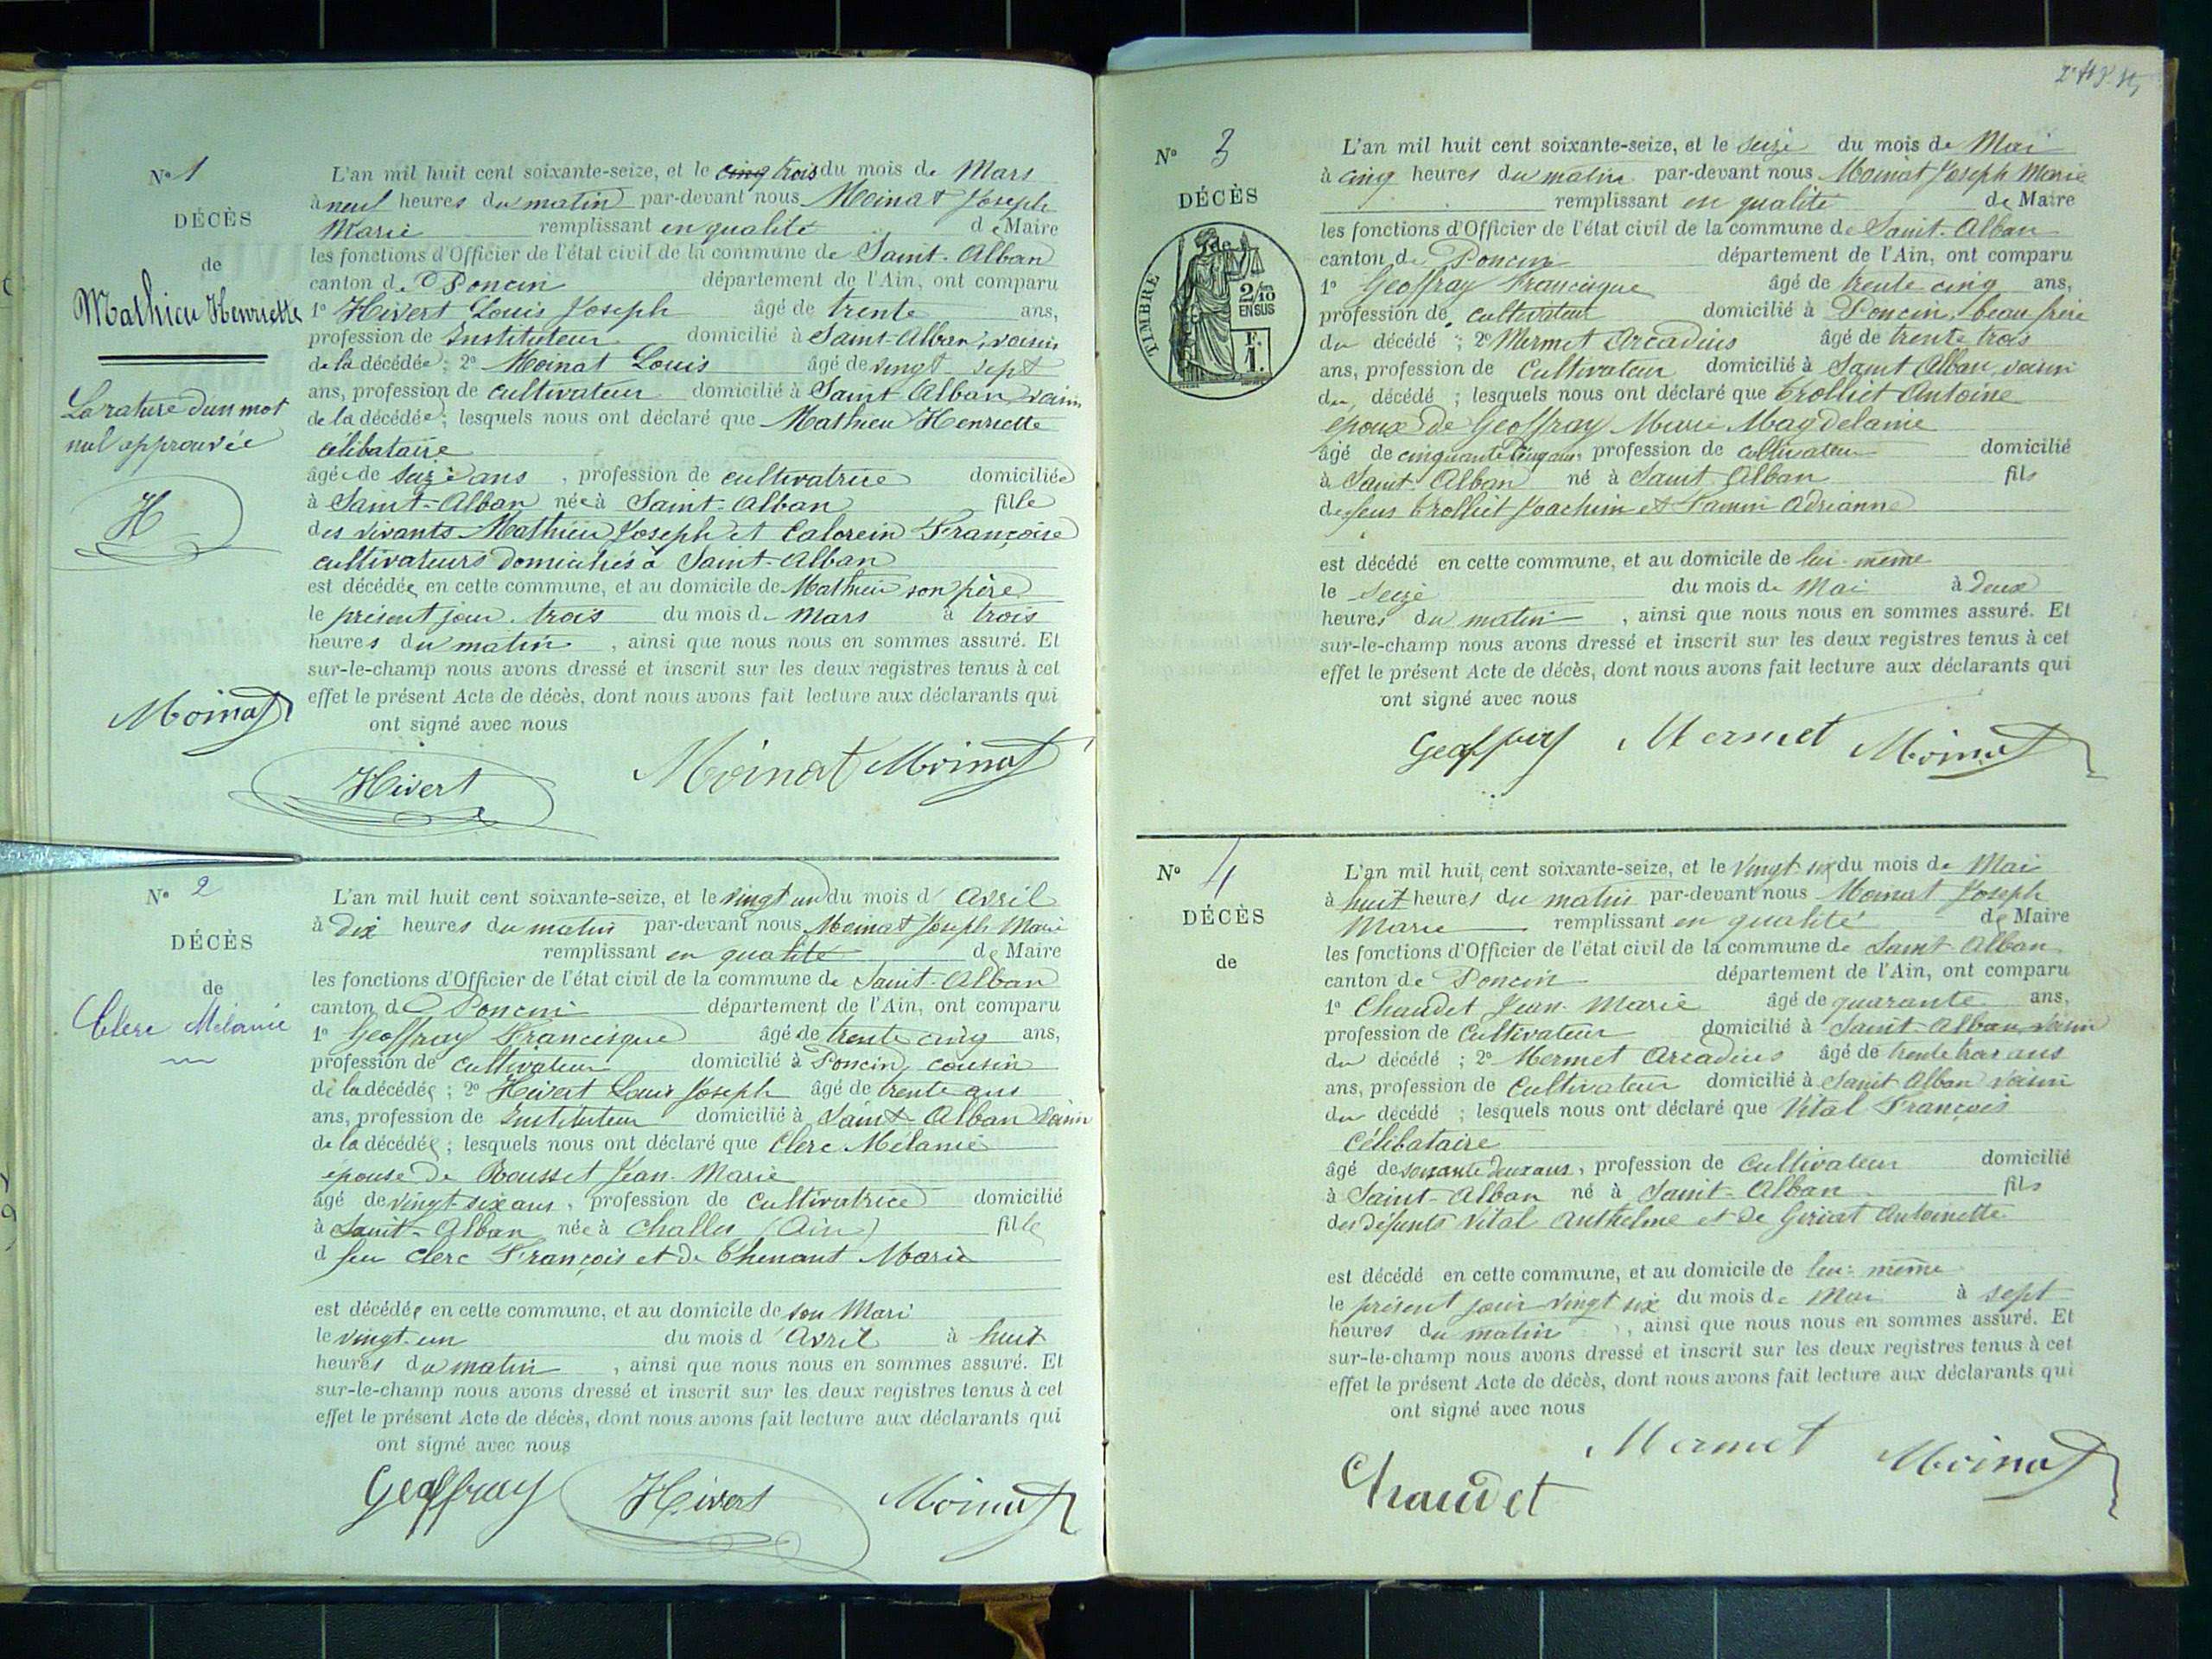 N° 1
DÉCÈS
de
Mathieu Henriette
La rature d'un mot
nul approuvée
H
Moinat
L'an mil huit cent soixante-seize, et le cinq trois du mois de Mars
à neuf heures du matin par-devant nous Moinat Joseph
Marie remplissant en qualité de Maire
les fonctions d'Officier de l'état civil de la commune de Saint-Alban
canton de Poncin département de l'Ain, ont comparu
1° Hivert Louis Joseph âgé de trente ans,
profession de Instituteur domicilié à Saint-Alban, voisin
de la décédée ; 2° Moinat Louis âgé de vingt sept
ans, profession de cultivateur domicilié à Saint Alban voisin
de la décédée ; lesquels nous ont déclaré que Mathieu Henriette
célibataire
âgée de seize ans , profession de cultivatrice domiciliée
à Saint-Alban née à Saint-Alban fille
des vivants Mathieu Joseph et Françoise
cultivateurs domiciliés à Saint-Alban
est décédée en cette commune, et au domicile de Mathieu son père
le présent jour trois du mois de Mars à trois
heures du matin , ainsi que nous nous en sommes assuré. Et
sur-le-champ nous avons dressé et inscrit sur les deux registres tenus à cet
effet le présent Acte de décès, dont nous avons fait lecture aux déclarants qui
ont signé avec nous
Hivert Moinat Moinat
N° 2
DÉCÈS
de
Clerc Mélanie
L'an mil huit cent soixante-seize, et le vingt un du mois d' Avril
à dix heures du matin par-devant nous Moinat Joseph Marie
remplissant en qualité de Maire
les fonctions d'Officier de l'état civil de la commune de Saint-Alban
canton de Poncin département de l'Ain, ont comparu
1° Geoffray Francisque âgé de trente cinq ans,
profession de cultivateur domicilié à Poncin, cousin
de la décédée ; 2° Hivert Louis Joseph âgé de trente ans
ans, profession de Instituteur domicilié à Saint-Alban voisin
de la décédée ; lesquels nous ont déclaré que Clerc Mélanie
épouse de Rousset Jean-Marie
âgé de vingt-six ans, profession de cultivatrice domicilié
à Saint-Alban née à Challes (Ain) fille
d feu Clerc François et de Thenant Marie
est décédée en cette commune, et au domicile de son Mari
le vingt-un du mois d' Avril à huit
heures du matin , ainsi que nous nous en sommes assuré. Et
sur-le-champ nous avons dressé et inscrit sur les deux registres tenus à cet
effet le présent Acte de décès, dont nous avons fait lecture aux déclarants qui
ont signé avec nous
Geoffray Hivert Moinat
N° 3
DÉCÈS
de
TIMBRE
2/10
EN SUS
F.
1.
L'an mil huit cent soixante-seize, et le seize du mois de Mai
à cinq heures du matin par-devant nous Moinat Joseph Marie
remplissant en qualité de Maire
les fonctions d'Officier de l'état civil de la commune de Saint-Alban
canton de Poncin département de l'Ain, ont comparu
1° Geoffray Francisque âgé de trente cinq ans,
profession de cultivateur domicilié à Poncin, beau frère
du décédé ; 2° Mermet Arcadius âgé de trente trois
ans, profession de Cultivateur domicilié à Saint Alban, voisin
du décédé ; lesquels nous ont déclaré que Trolliet Antoine
époux de Geoffray Marie Magdelaine
âgé de cinquante cinq ans, profession de cultivateur domicilié
à Saint-Alban né à Saint Alban fils
de feus Trolliet Joachim et Adrianne
est décédé en cette commune, et au domicile de lui-même
le Seize du mois de Mai à deux
heures du matin , ainsi que nous nous en sommes assuré. Et
sur-le-champ nous avons dressé et inscrit sur les deux registres tenus à cet
effet le présent Acte de décès, dont nous avons fait lecture aux déclarants qui
ont signé avec nous
Geoffray Mermet Moinat
N° 4
DÉCÈS
de
L'an mil huit cent soixante-seize, et le vingt-six du mois de Mai
à huit heures du matin par-devant nous Moinat Joseph
Marie remplissant en qualité de Maire
les fonctions d'Officier de l'état civil de la commune de Saint Alban
canton de Poncin département de l'Ain, ont comparu
1° Chaudet Jean-Marie âgé de quarante ans,
profession de Cultivateur domicilié à Saint-Alban, voisin
du décédé ; 2° Mermet Arcadius âgé de trente trois ans
ans, profession de Cultivateur domicilié à Saint Alban voisin
du décédé ; lesquels nous ont déclaré que Vital François
Célibataire
âgé de soixante deux ans, profession de Cultivateur domicilié
à Saint-Alban né à Saint-Alban fils
des défunts Vital Anthelme et de Giriat Antoinette
est décédé en cette commune, et au domicile de lui-même
le présent jour vingt six du mois de Mai à sept
heures du matin , ainsi que nous nous en sommes assuré. Et
sur-le-champ nous avons dressé et inscrit sur les deux registres tenus à cet
effet le présent Acte de décès, dont nous avons fait lecture aux déclarants qui
ont signé avec nous
Chaudet Mermet Moinat